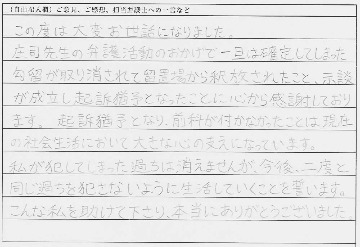 (自由記入欄)ご意見、ご感想、担当弁護士への一言など
この度は大変お世話になりました。
庄司先生の弁護活動のおかげで一旦は確定してしまった
勾留が取り消されて留置場から釈放されたこと、示談
が成立し起訴猶予となったことに心から感謝しており
ます。起訴猶予となり、前科が付かなかったことは現在
の社会生活において大きな心の支えになっています。
私が犯してしまった過ちは消えませんが、今後、二度と
同じ過ちを犯さないように生活していくことを誓います。
こんな私を助けて下さり、本当にありがとうございました。